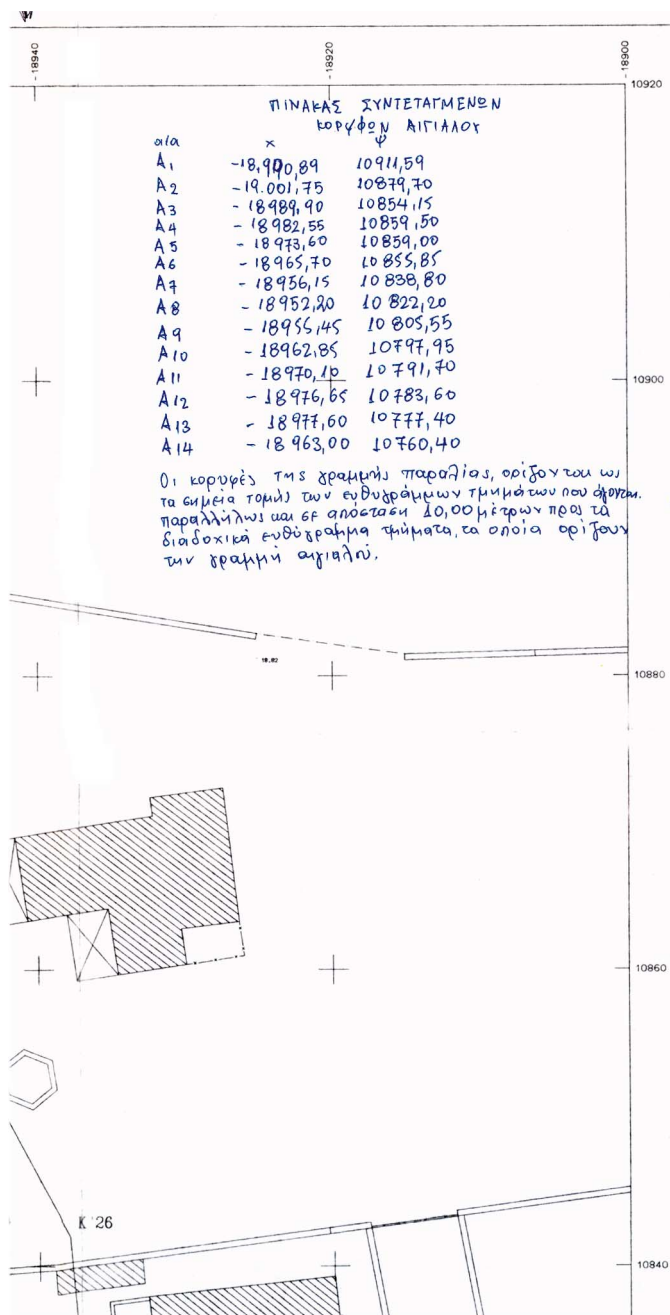 -18940
-18920
-18900
10920
ΠΙΝΑΚΑΣ ΣΥΝΤΕΤΑΓΜΕΝΩΝ
ΚΟΡΥΦΩΝ ΑΙΓΙΑΛΟΥ
α/α x ψ
A1 -18.990,89 10911,59
A2 -19.001,75 10879,70
A3 -18989,90 10854,15
A4 -18982,55 10859,50
A5 -18973,60 10859,00
A6 -18965,70 10855,85
A7 -18956,15 10838,80
A8 -18952,20 10822,20
A9 -18955,45 10805,55
A10 -18962,85 10797,95
A11 -18970,10 10791,70
A12 -18976,65 10783,60
A13 -18977,60 10777,40
A14 -18963,00 10760,40
10900
Οι κορυφές της γραμμής παραλίας, ορίζονται ως
τα σημεία τομής των ευθυγράμμων τμημάτων που άγονται
παραλλήλως και σε απόσταση 10,00 μέτρων προς τα
διαδοχικά ευθύγραμμα τμήματα, τα οποία ορίζουν
την γραμμή αιγιαλού.
10880
10860
K 26
10840